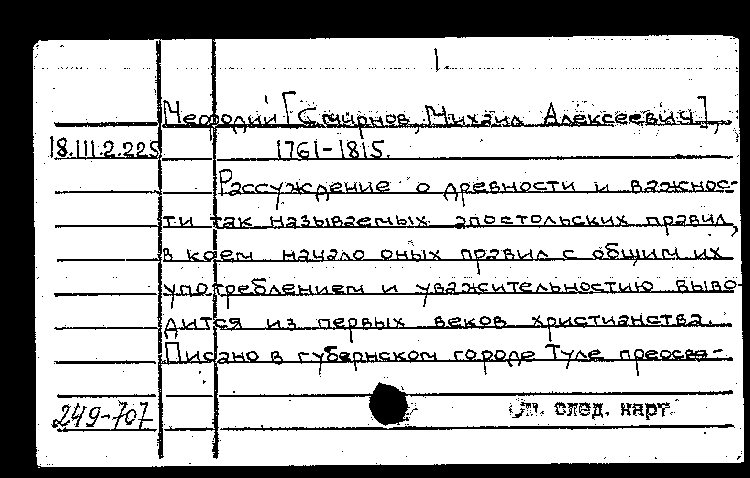 1
Мефодий [Смирнов, Михаил Алексеевич],
18.III.2.225 1761-1815.
Рассуждение о древности и важнос-
ти так называемых апостольских правил,
в коем начало оных правил с общим их
употреблением и уважительностию выво-
дится из первых веков христианства.
Писано в губернском городе Туле преосвя-
249-707 См. след. карт.